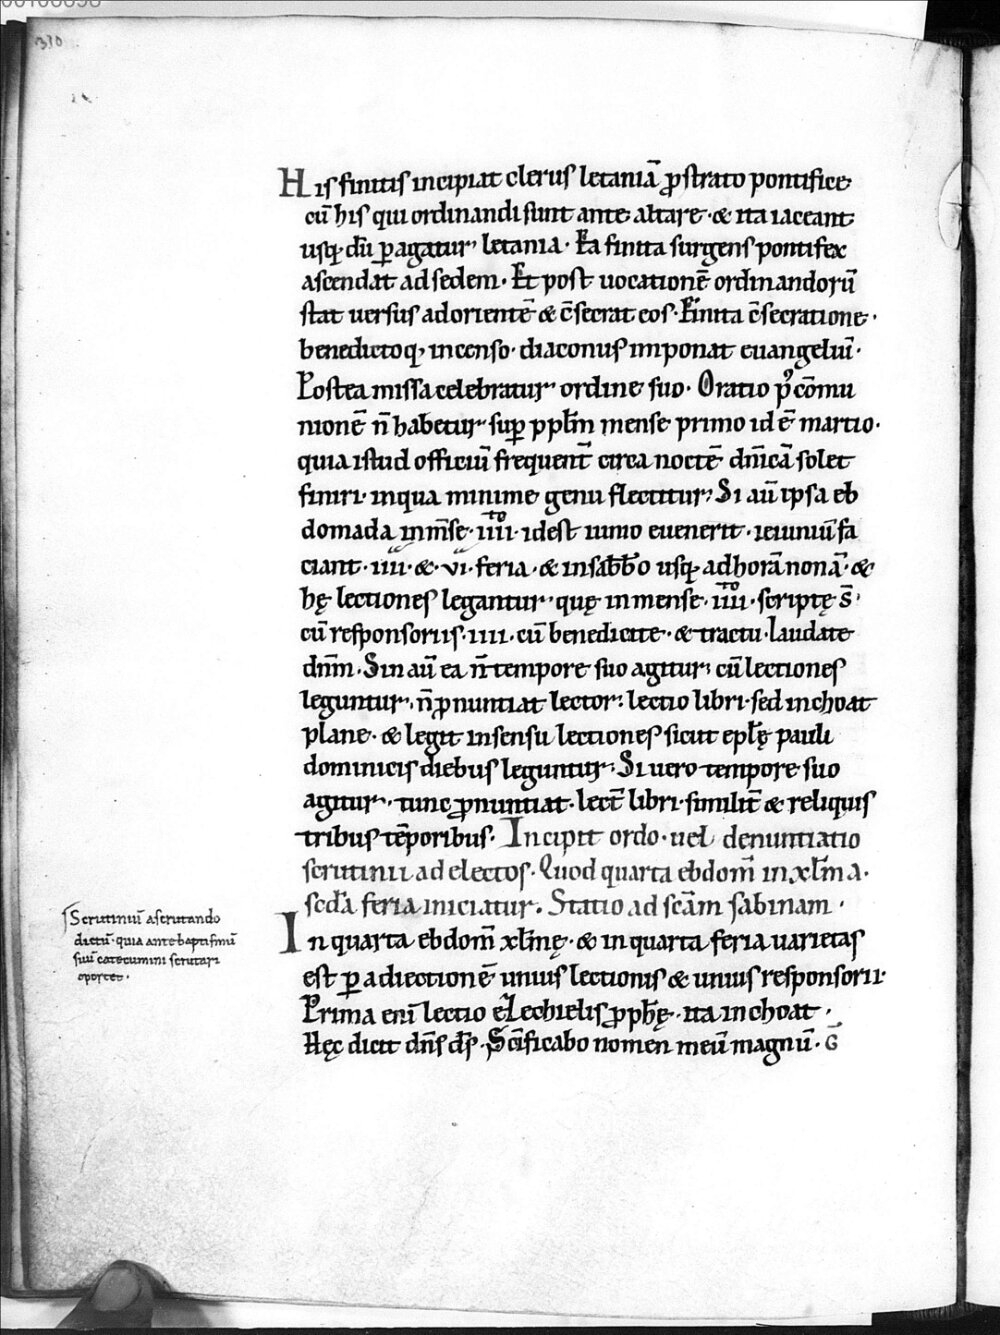 310
His finitis incipiat clerus letaniā ꝓstrato pontifice
cū his qui ordinandi sunt ante altare · & ita iaceant
usq; dū ꝑagatur letania · Ea finita surgens pontifex
ascendat ad sedem · Et post uocationē ordinandorū
stat uersus ad orientē & c̄secrat eos · Finita c̄secratione ·
benedictoq; incenso · diaconus imponat euangeliū ·
Postea missa celebratur ordine suo · Oratio p᾽ cōmu
nionē n̄ habetur suꝑ ppl̄m mense primo id ē martio ·
quia istud officiū frequent̄ circa noctē dn̄icā solet
finiri · in qua minime genu flectitur; Si aū ipsa eb
domada in m̄se · iiiito · id est iunio euenerit · ieiuniū fa
ciant · iiii · & · vi · feria · & in sabb̄o usq; ad horā nonā · &
hę lectiones legantur · quę in mense · iiiito · scriptę s̄ ·
cū responsoriis · iiii · cū benedicite · & tractu · laudate
dn̄m · Sin aū ea n̄ tempore suo agitur; cū lectiones
leguntur · n̄ ꝓnuntiat lector · lectio libri · sed inchoat
plane · & legit in sensu lectiones sicut epl̄ę pauli
dominicis diebus leguntur; Si uero tempore suo
agitur · tunc ꝓnuntiat · lect̄ libri · similit̄ & reliquis
tribus tēporibus · Incipit ordo · uel denuntiatio
scrutinii ad electos · Quod quarta ebdom̄ in xl̄ma ·
scd̄a feria iniciatur · Statio ad scām sabinam ·
In quarta ebdom̄ xl̄mę · & in quarta feria uarietas
est ꝑ adiectionē unius lectionis & unius responsorii ·
Prima eni lectio ezechielis ꝓph̄ę · ita inchoat ·
Hęc dicit dn̄s ds̄ · Sc̄ificabo nomen meū magnū · G̅
Scrutiniū a scrutando
dictū · quia ante baptismū
suū catecumini scrutari
oportet ·